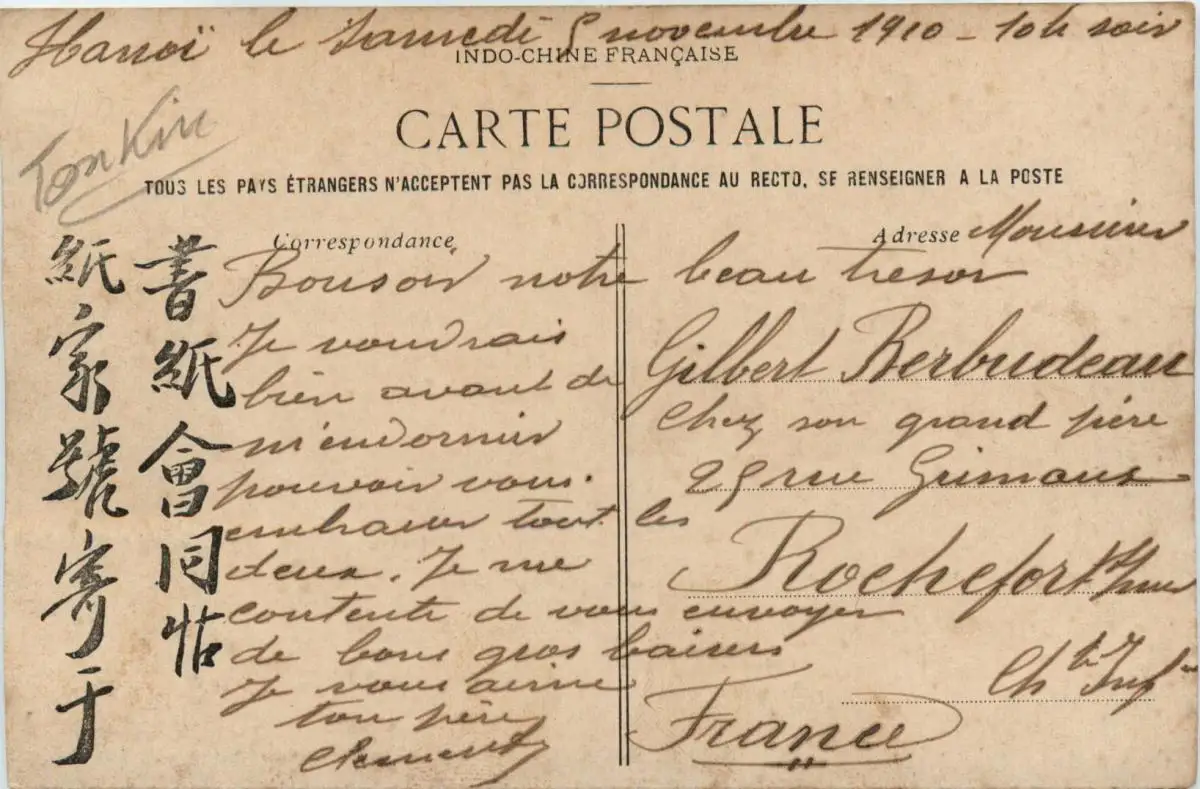 Hanoï le Samedi 5 novembre 1910 - 10h soir
INDO-CHINE FRANÇAISE
CARTE POSTALE
TonKin
TOUS LES PAYS ÉTRANGERS N'ACCEPTENT PAS LA CORRESPONDANCE AU RECTO, SE RENSEIGNER A LA POSTE
書紙會同帖
紙家號寄于
Correspondance
Bonsoir notre beau tresor
Je voudrais
bien avant de
m'endormir
pouvoir vous
embrasser tout les
deux. Je me
contente de vous envoyer
de bons gros baisers
Je vous aime
ton père
Clement
Adresse Monsieur
Gilbert Berbudeau
Chez son grand père
25 rue Grimaux
Rochefort s/mer
Ch te Infre
France